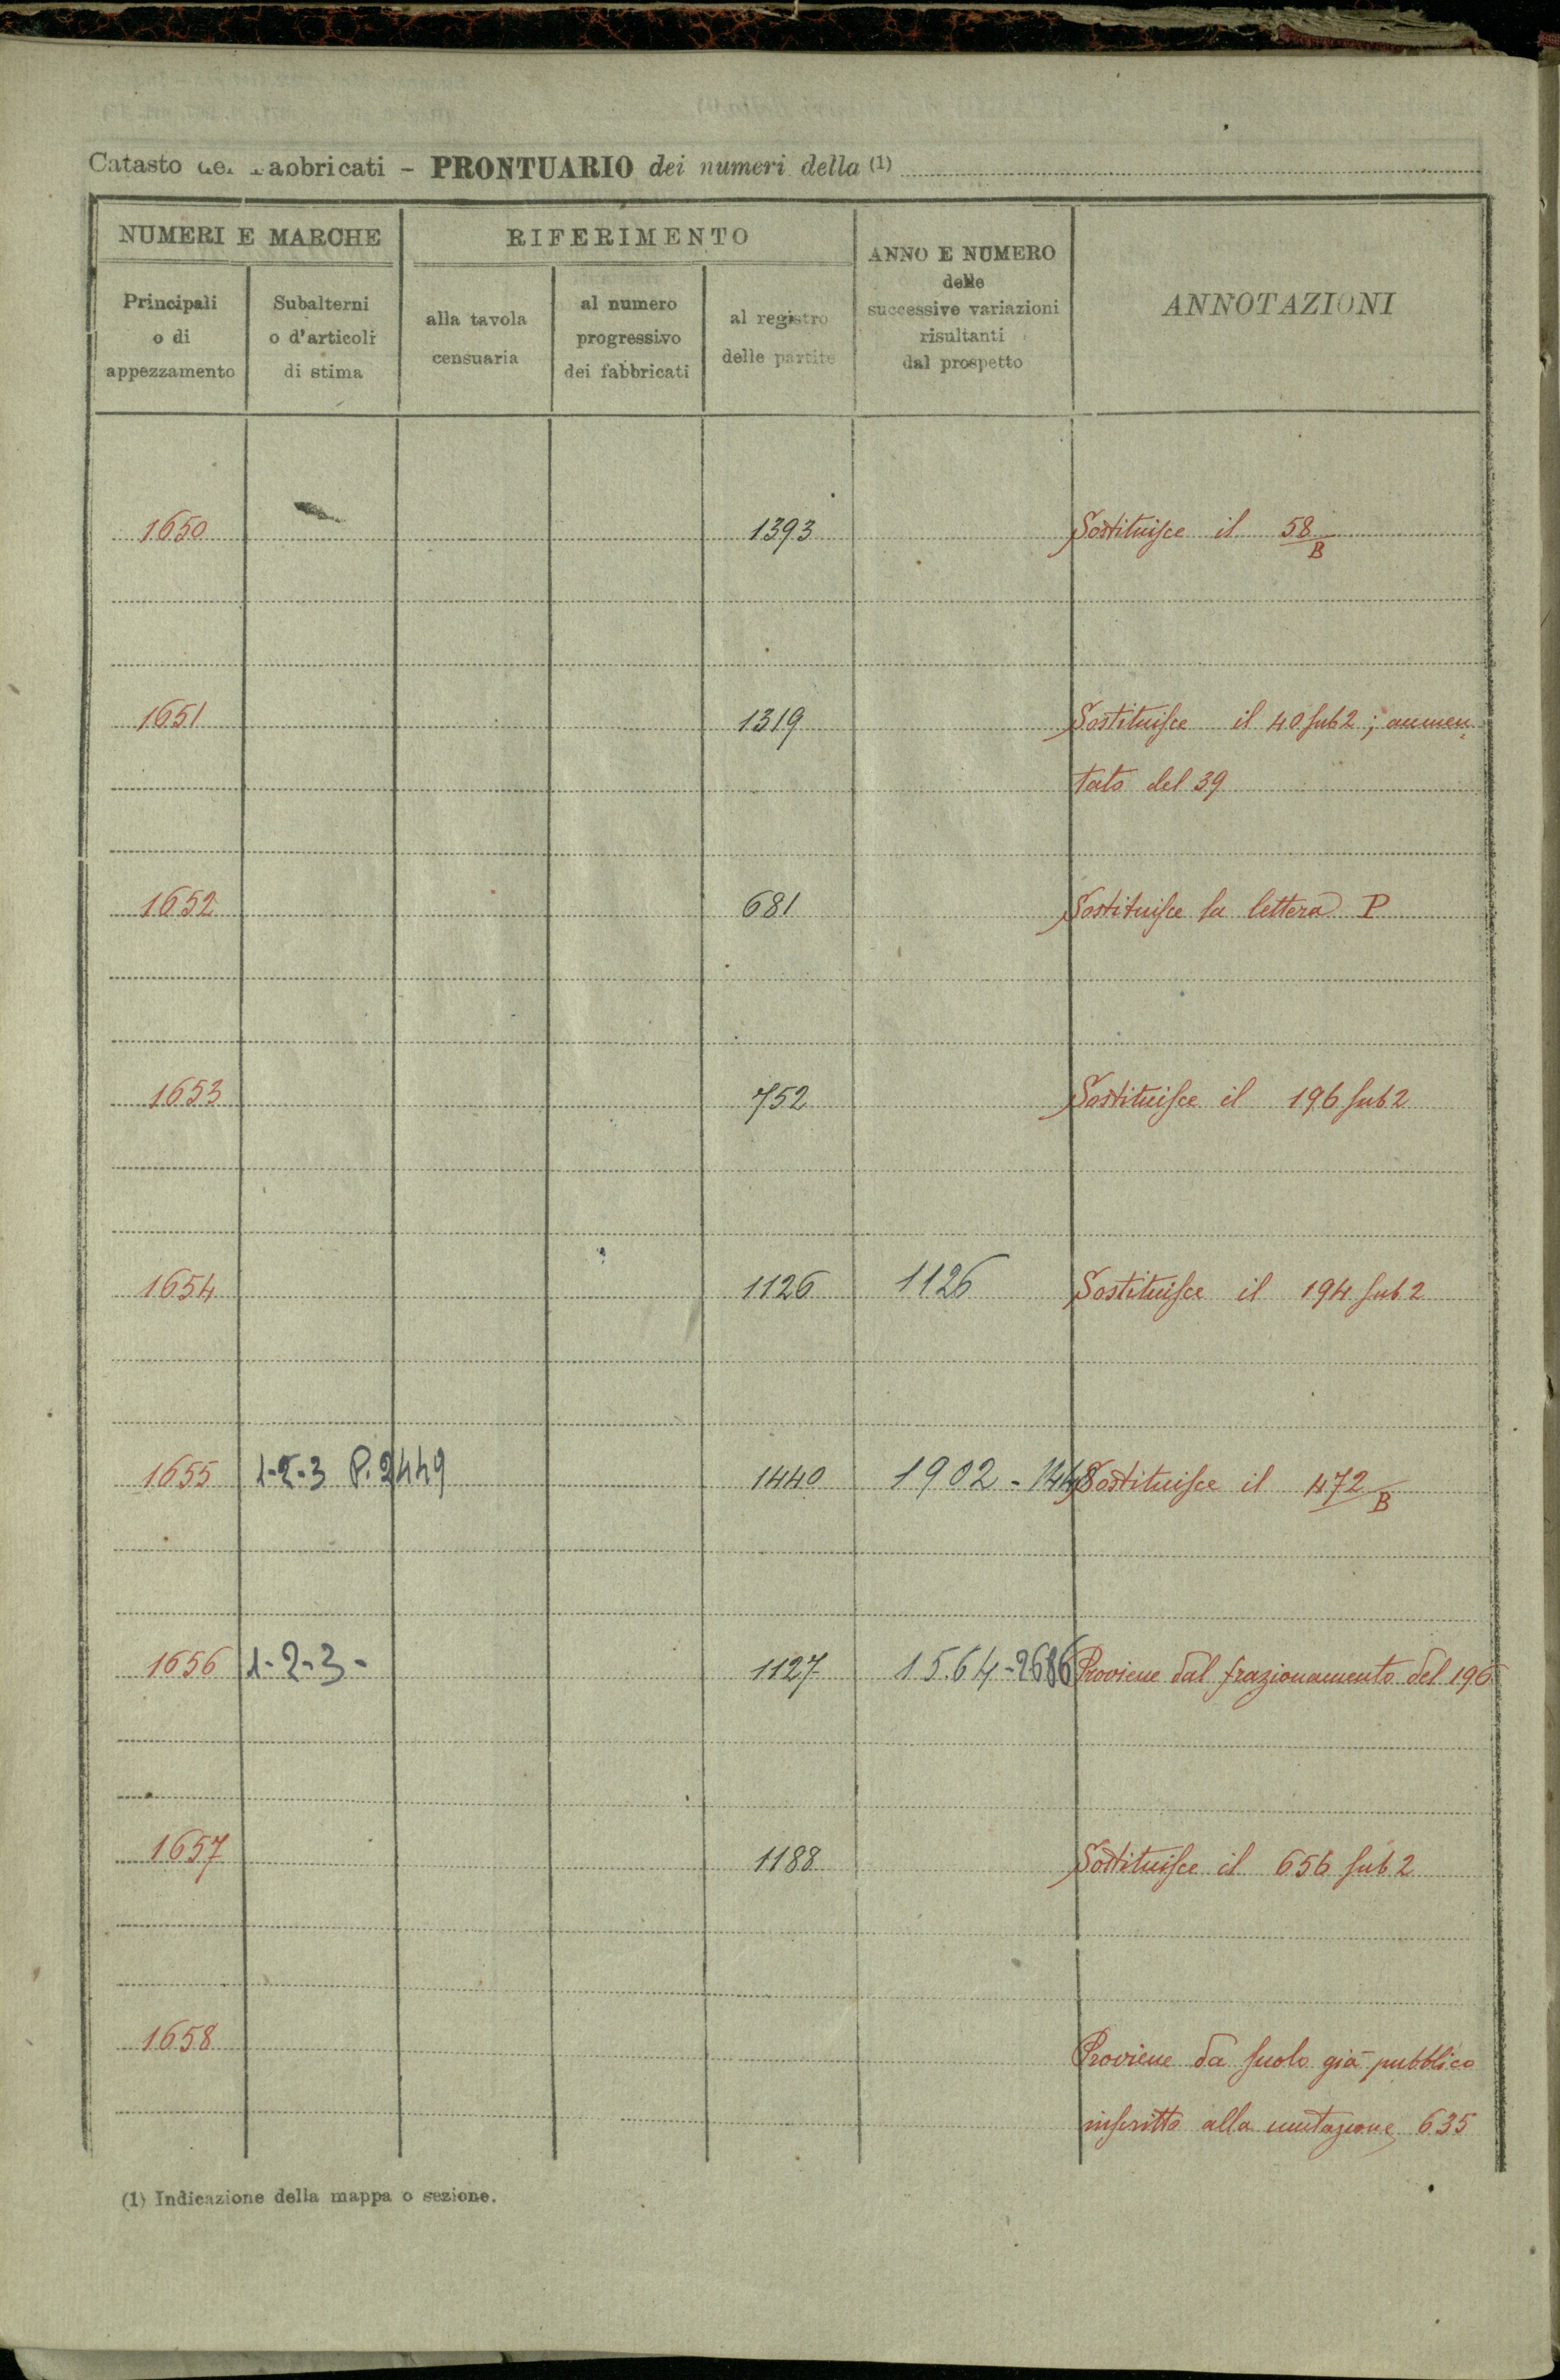 Catasto dei Fabbricati - PRONTUARIO dei numeri della (1)
NUMERI E MARCHE
RIFERIMENTO
ANNO E NUMERO
delle
successive variazioni
risultanti
dal prospetto
ANNOTAZIONI
Principali
o di
appezzamento
Subalterni
o d'articoli
di stima
alla tavola
censuaria
al numero
progressivo
dei fabbricati
al registro
delle partite
1650 1393 Sostituisce il 58/B
1651 1319 Sostituisce il 40 sub 2; aumen=
tato del 39
1652 681 Sostituisce la lettera P
1653 752 Sostituisce il 196 sub 2
1654 1126 1126 Sostituisce il 194 sub 2
1655 1-2-3 P. 2449 1440 1902 - 1448 Sostituisce il 472/B
1656 1-2-3- 1127 15.64-2686 Proviene dal frazionamento del 196
1657 1188 Sostituisce il 656 sub 2
1658 Proviene da suolo già pubblico
inscritto alla mutazione 635
(1) Indicazione della mappa o sezione.